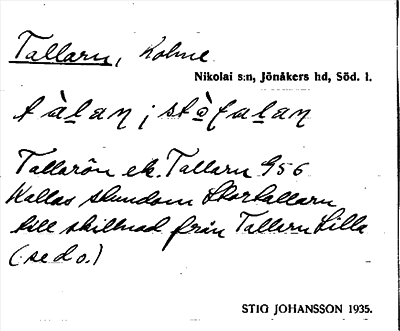 Tallarn, holme
Nikolai s:n, Jönåkers hd, Söd. l.
tàlan ; stòfalan
Tallarön ek. Tallarn 956
Kallas stundom Stortallarn
till skillnad från Tallarn Lilla
(se d o.)
STIG JOHANSSON 1935.